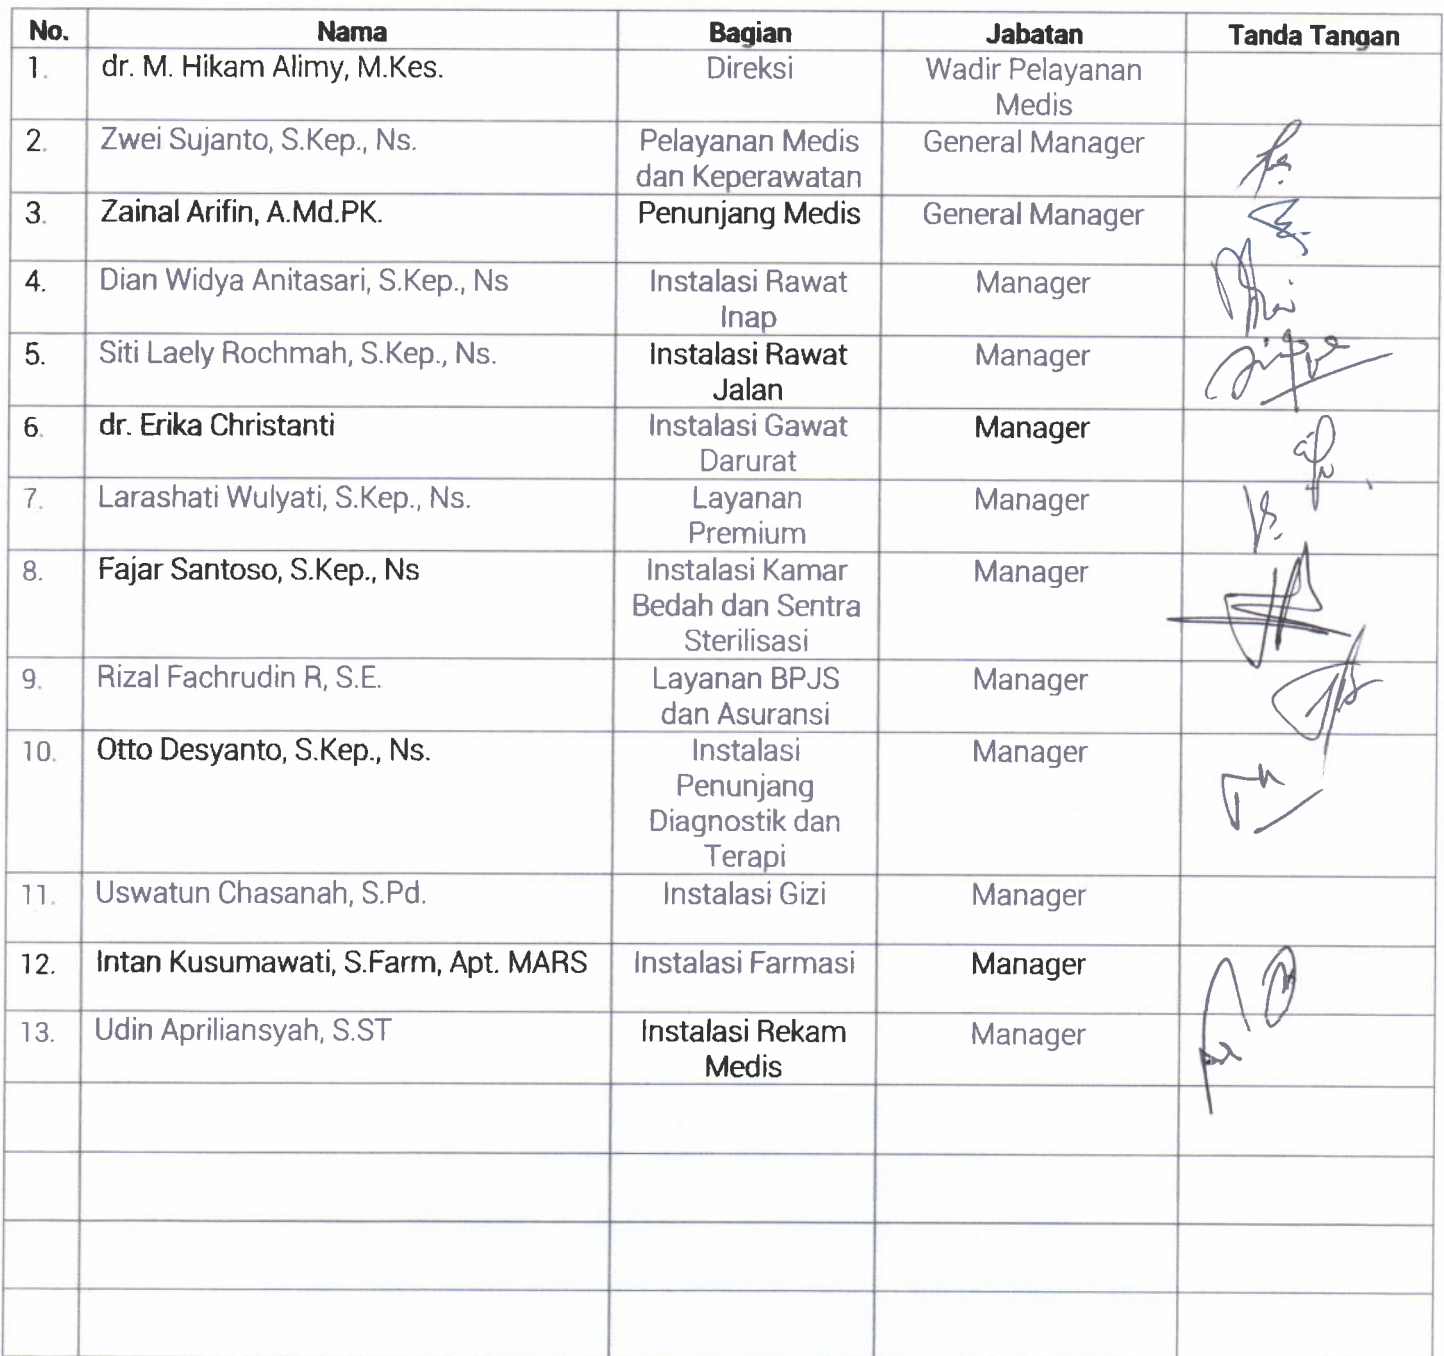 No. Nama Bagian Jabatan Tanda Tangan
1. dr. M. Hikam Alimy, M.Kes. Direksi Wadir Pelayanan
Medis
2. Zwei Sujanto, S.Kep., Ns. Pelayanan Medis General Manager
dan Keperawatan
3. Zainal Arifin, A.Md.PK. Penunjang Medis General Manager
4. Dian Widya Anitasari, S.Kep., Ns Instalasi Rawat Manager
Inap
5. Siti Laely Rochmah, S.Kep., Ns. Instalasi Rawat Manager
Jalan
6. dr. Erika Christanti Instalasi Gawat Manager
Darurat
7. Larashati Wulyati, S.Kep., Ns. Layanan Manager
Premium
8. Fajar Santoso, S.Kep., Ns Instalasi Kamar Manager
Bedah dan Sentra
Sterilisasi
9. Rizal Fachrudin R, S.E. Layanan BPJS Manager
dan Asuransi
10. Otto Desyanto, S.Kep., Ns. Instalasi Manager
Penunjang
Diagnostik dan
Terapi
11. Uswatun Chasanah, S.Pd. Instalasi Gizi Manager
12. Intan Kusumawati, S.Farm, Apt. MARS Instalasi Farmasi Manager
13. Udin Apriliansyah, S.ST Instalasi Rekam Manager
Medis